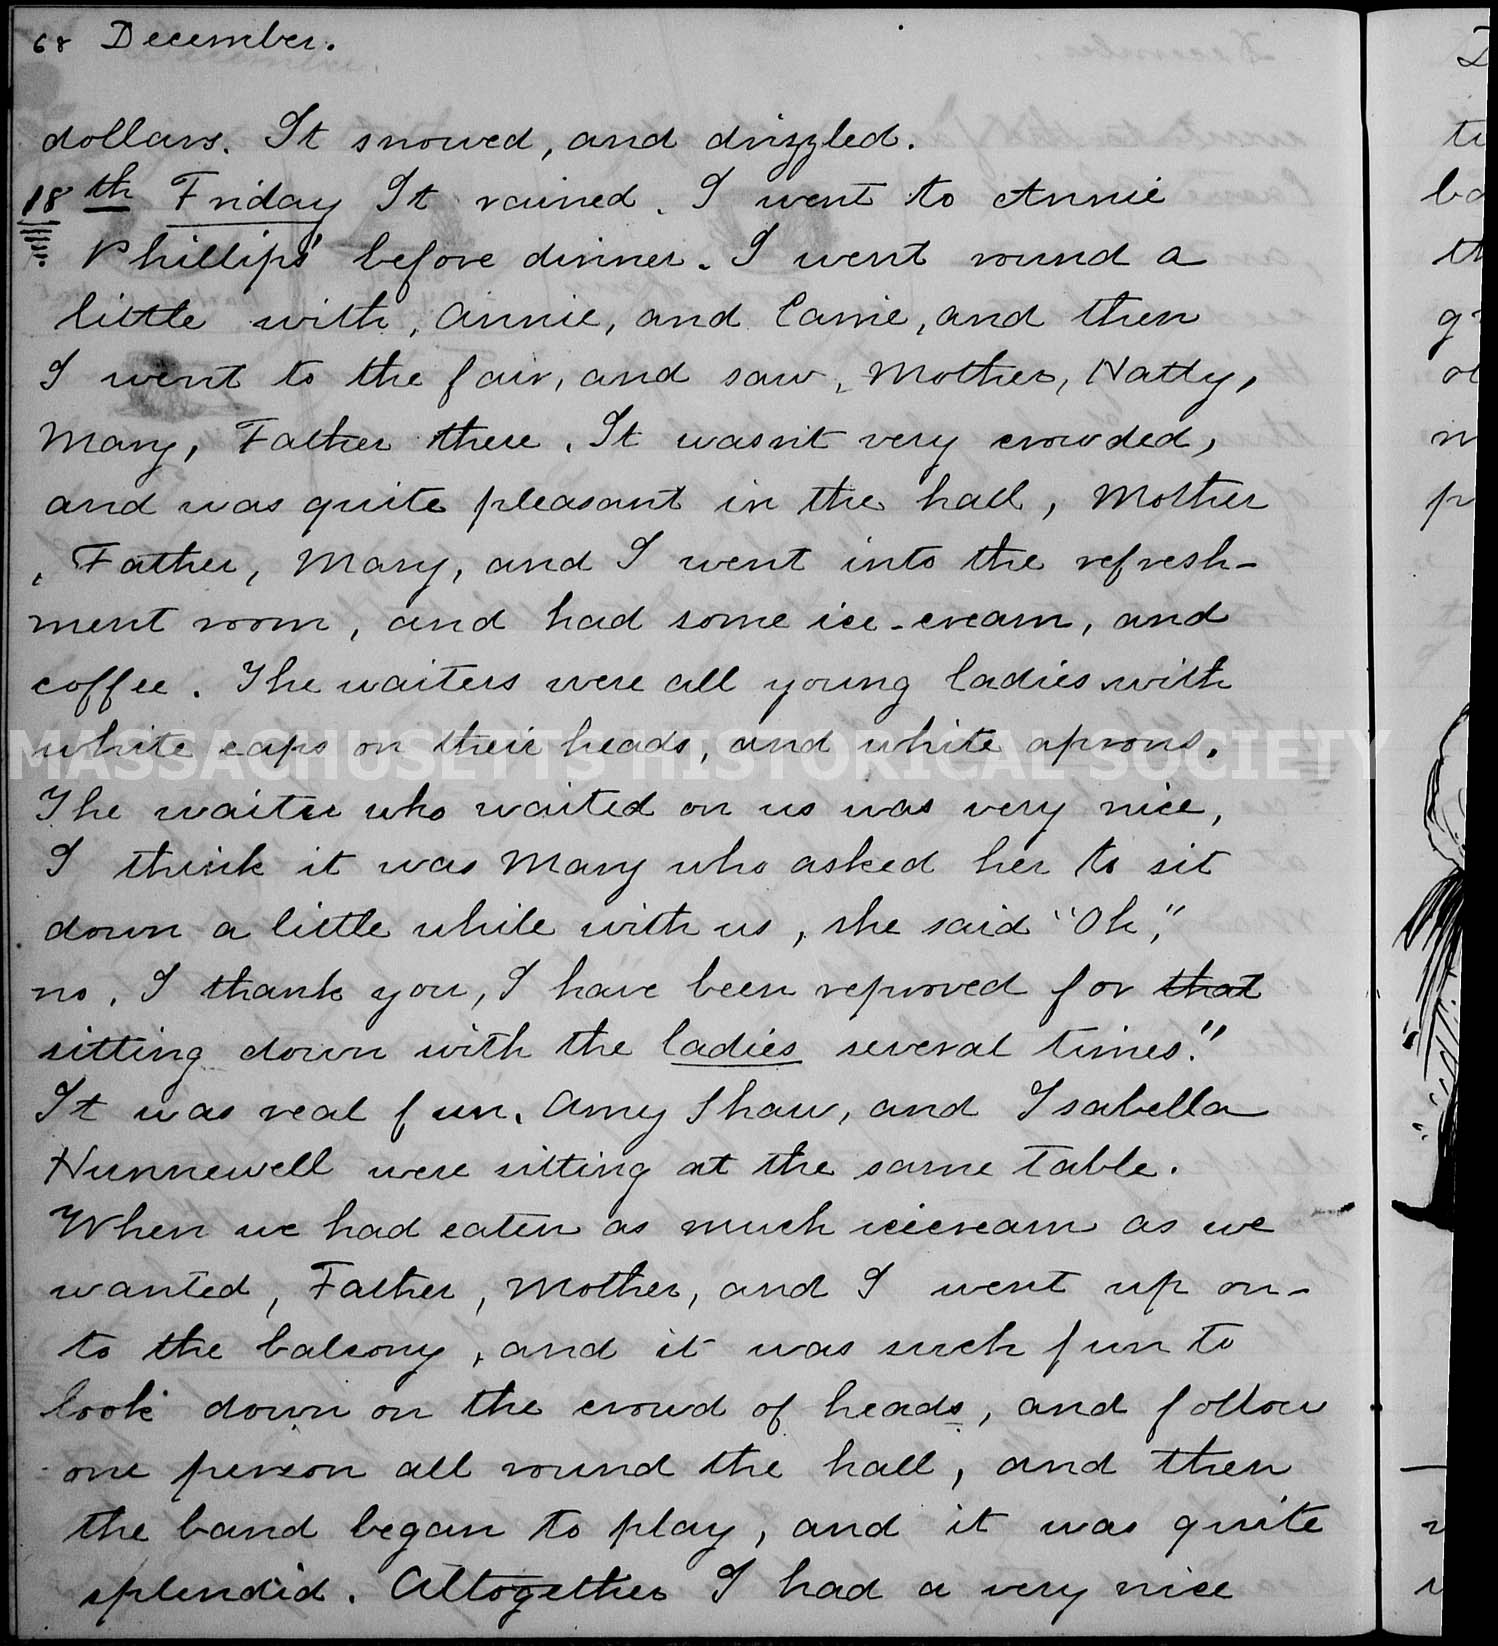 68 December.
dollars. It snowed, and drizzled.
18th Friday It rained. I went to Annie
Phillips' before dinner. I went round a
little with, Annie, and Carrie, and then
I went to the fair, and saw, Mother, Hatty,
Mary, Father there. It wasn't very crowded,
and was quite pleasant in the hall, Mother
, Father, Mary, and I went into the refresh-
ment room, and had some ice-cream, and
coffee. The waiters were all young ladies with
white caps on their heads, and white aprons.
MASSACHUSETTS HISTORICAL SOCIETY
The waiter who waited on us was very nice,
I think it was Mary who asked her to sit
down a little while with us, she said "Oh,"
no, I thank you, I have been reproved for that
sitting down with the ladies several times."
It was real fun. Amy Shaw, and Isabella
Hunnewell were sitting at the same table.
When we had eaten as much icecream as we
wanted, Father, Mother, and I went up on-
to the balcony, and it was such fun to
look down on the crowd of heads, and follow
one person all round the hall, and then
the band began to play, and it was quite
splendid. Altogether I had a very nice